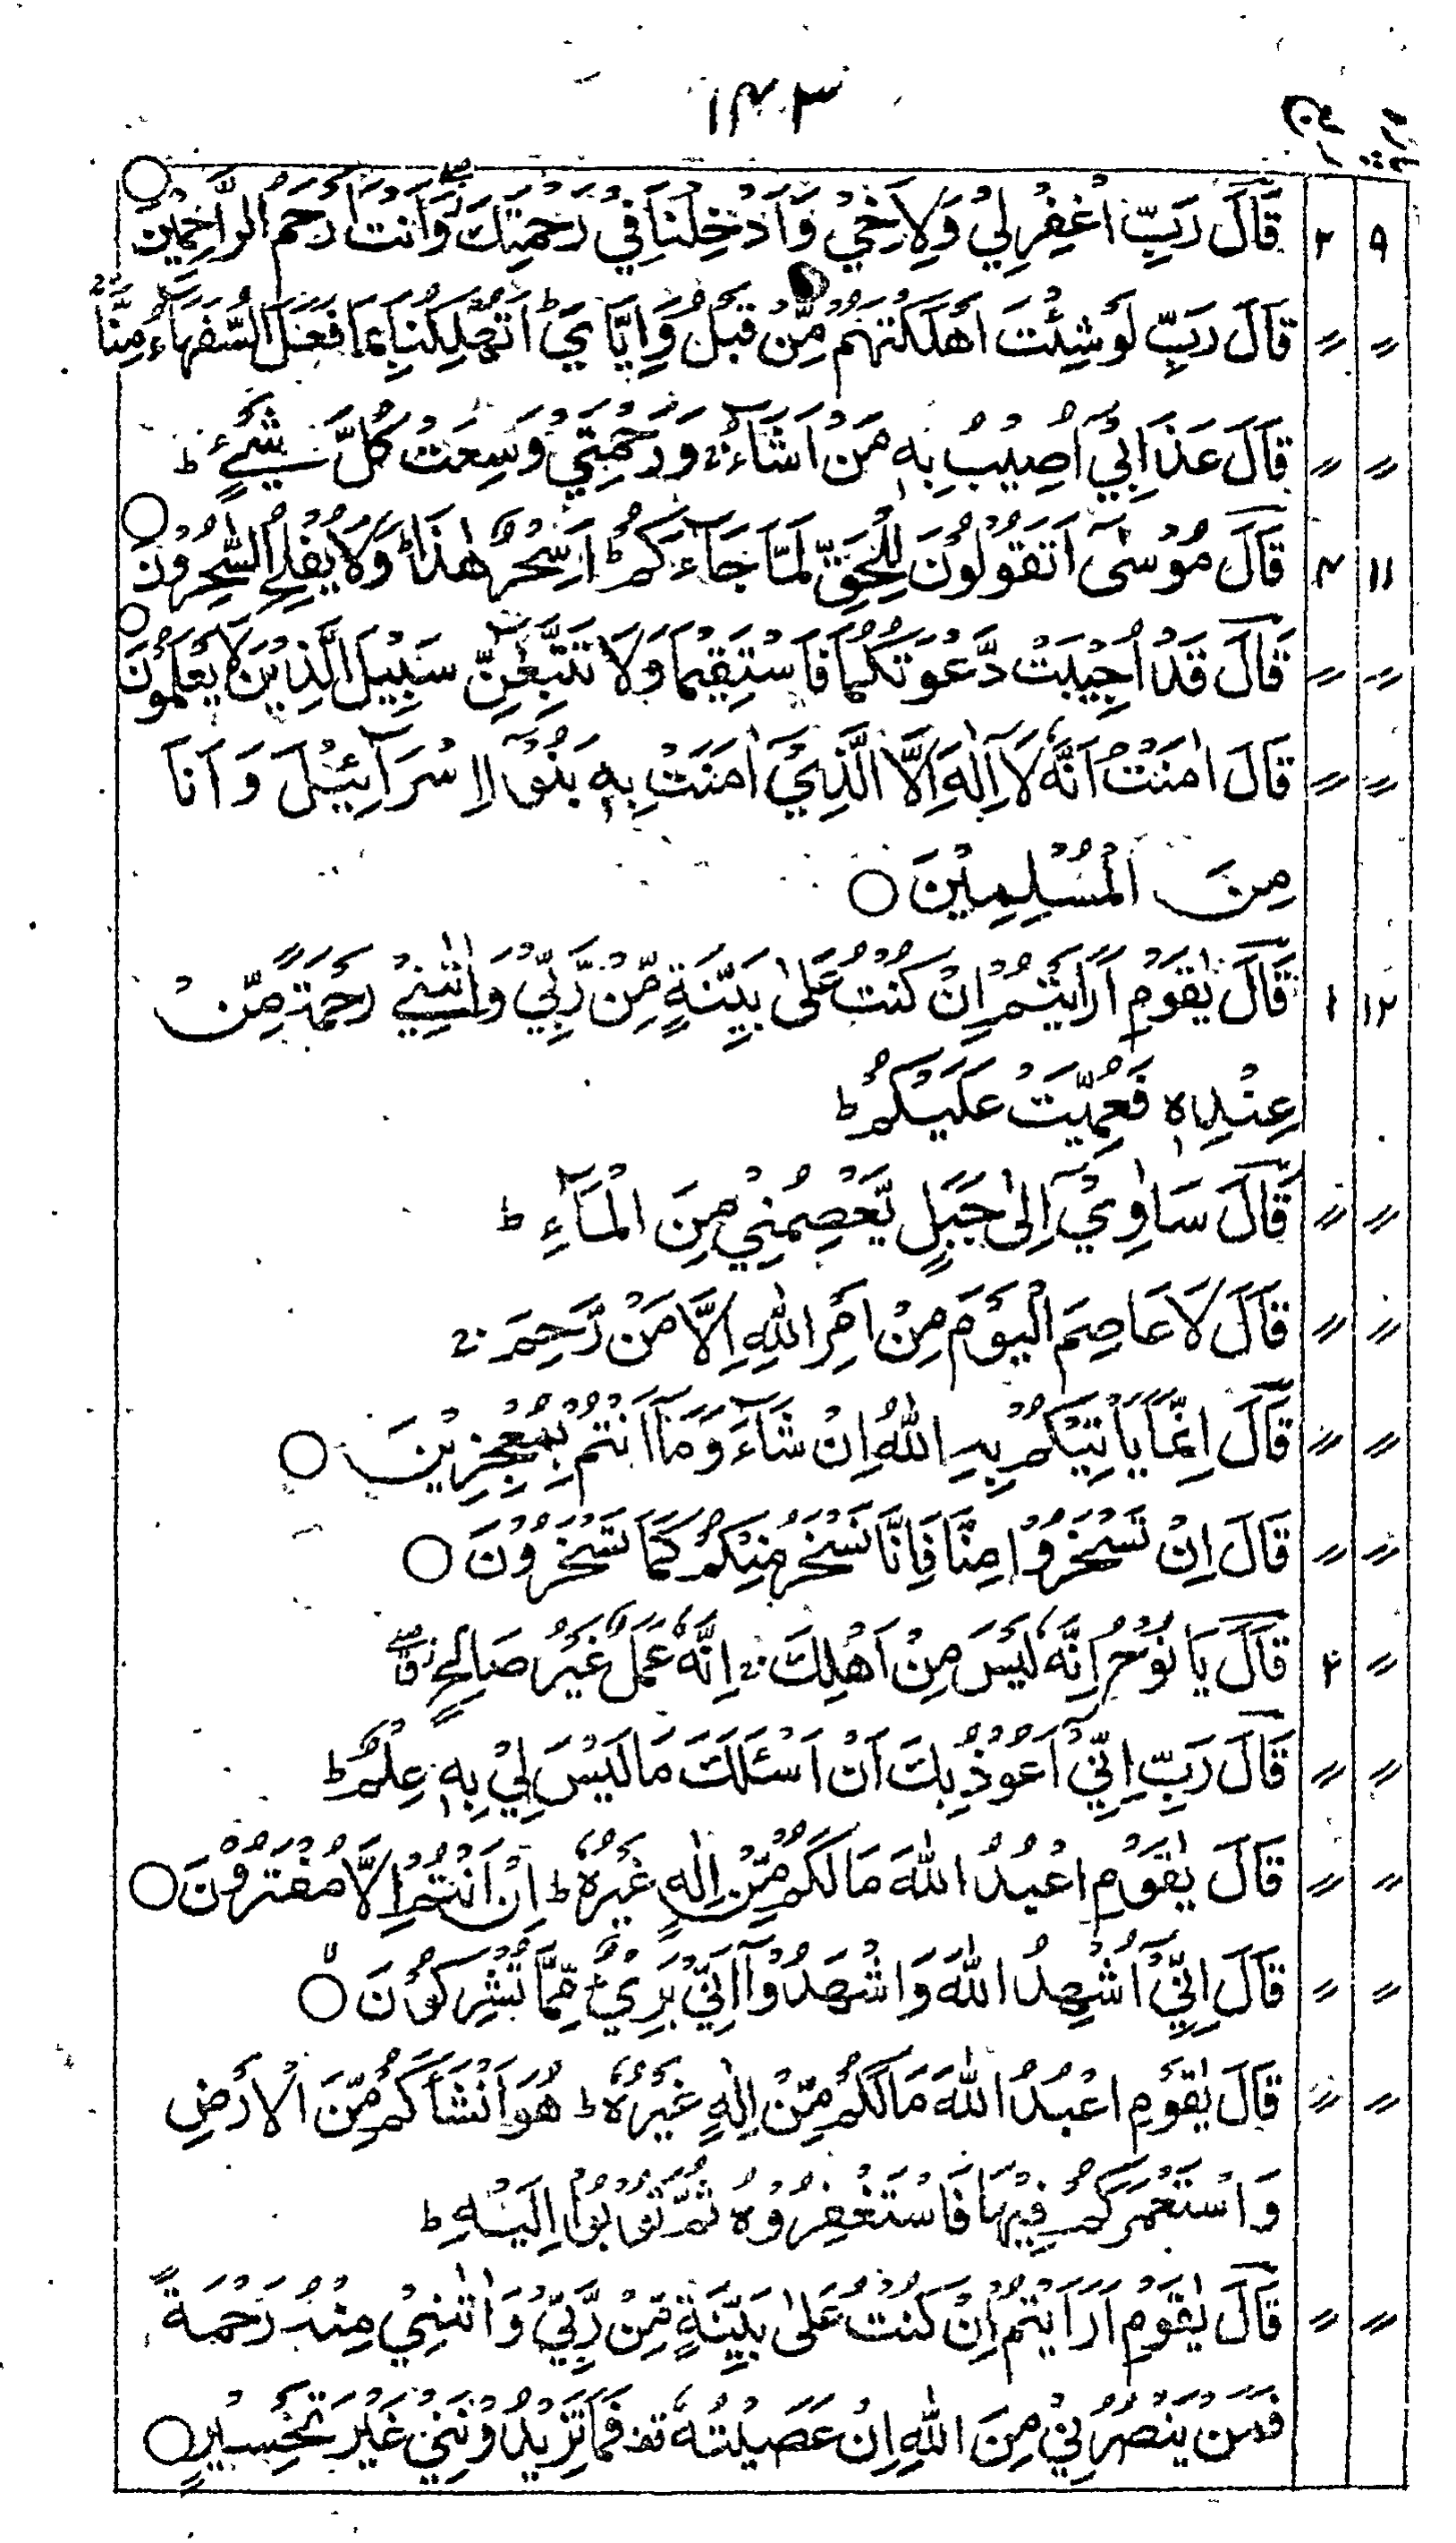 ۱۴۳
۹ ۲ قَالَ رَبِّ اغْفِرْ لِيْ وَلِاَخِيْ وَاَدْخِلْنَا فِيْ رَحْمَتِكَ ۖ وَاَنْتَ اَرْحَمُ الرّٰحِمِيْنَ ○
〃 〃 قَالَ رَبِّ لَوْ شِئْتَ اَهْلَكْتَهُمْ مِّنْ قَبْلُ وَاِيَّايَ ؕ اَتُهْلِكُنَا بِمَا فَعَلَ السُّفَهَآءُ مِنَّا
〃 〃 قَالَ عَذَابِيْٓ اُصِيْبُ بِهٖ مَنْ اَشَآءُ ۚ وَرَحْمَتِيْ وَسِعَتْ كُلَّ شَيْءٍ ؕ
۱۱ ۴ قَالَ مُوْسٰٓى اَتَقُوْلُوْنَ لِلْحَقِّ لَمَّا جَآءَكُمْ ؕ اَسِحْرٌ هٰذَا ؕ وَلَا يُفْلِحُ السّٰحِرُوْنَ ○
〃 〃 قَالَ قَدْ اُجِيْبَتْ دَّعْوَتُكُمَا فَاسْتَقِيْمَا وَلَا تَتَّبِعٰٓنِّ سَبِيْلَ الَّذِيْنَ لَا يَعْلَمُوْنَ ○
〃 〃 قَالَ اٰمَنْتُ اَنَّهٗ لَآ اِلٰهَ اِلَّا الَّذِيْٓ اٰمَنَتْ بِهٖ بَنُوْٓا اِسْرَآئِيْلَ وَاَنَا
مِنَ الْمُسْلِمِيْنَ ○
۱۲ ۱ قَالَ يٰقَوْمِ اَرَاَيْتُمْ اِنْ كُنْتُ عَلٰى بَيِّنَةٍ مِّنْ رَّبِّيْ وَاٰتٰىنِيْ رَحْمَةً مِّنْ
عِنْدِهٖ فَعُمِّيَتْ عَلَيْكُمْ ؕ
〃 〃 قَالَ سَاٰوِيْٓ اِلٰى جَبَلٍ يَّعْصِمُنِيْ مِنَ الْمَآءِ ؕ
〃 〃 قَالَ لَا عَاصِمَ الْيَوْمَ مِنْ اَمْرِ اللّٰهِ اِلَّا مَنْ رَّحِمَ ۚ
〃 〃 قَالَ اِنَّمَا يَاْتِيْكُمْ بِهِ اللّٰهُ اِنْ شَآءَ وَمَآ اَنْتُمْ بِمُعْجِزِيْنَ ○
〃 〃 قَالَ اِنْ تَسْخَرُوْا مِنَّا فَاِنَّا نَسْخَرُ مِنْكُمْ كَمَا تَسْخَرُوْنَ ○
〃 ۴ قَالَ يَا نُوْحُ اِنَّهٗ لَيْسَ مِنْ اَهْلِكَ ۚ اِنَّهٗ عَمَلٌ غَيْرُ صَالِحٍ ۖ
〃 〃 قَالَ رَبِّ اِنِّيْٓ اَعُوْذُ بِكَ اَنْ اَسْئَلَكَ مَا لَيْسَ لِيْ بِهٖ عِلْمٌ ؕ
〃 〃 قَالَ يٰقَوْمِ اعْبُدُوا اللّٰهَ مَا لَكُمْ مِّنْ اِلٰهٍ غَيْرُهٗ ؕ اِنْ اَنْتُمْ اِلَّا مُفْتَرُوْنَ ○
〃 〃 قَالَ اِنِّيْٓ اُشْهِدُ اللّٰهَ وَاشْهَدُوْٓا اَنِّيْ بَرِيْٓءٌ مِّمَّا تُشْرِكُوْنَ ○
〃 〃 قَالَ يٰقَوْمِ اعْبُدُوا اللّٰهَ مَا لَكُمْ مِّنْ اِلٰهٍ غَيْرُهٗ ؕ هُوَ اَنْشَاَكُمْ مِّنَ الْاَرْضِ
وَاسْتَعْمَرَكُمْ فِيْهَا فَاسْتَغْفِرُوْهُ ثُمَّ تُوْبُوْٓا اِلَيْهِ ؕ
〃 〃 قَالَ يٰقَوْمِ اَرَاَيْتُمْ اِنْ كُنْتُ عَلٰى بَيِّنَةٍ مِّنْ رَّبِّيْ وَاٰتٰىنِيْ مِنْهُ رَحْمَةً
فَمَنْ يَّنْصُرُنِيْ مِنَ اللّٰهِ اِنْ عَصَيْتُهٗ قف فَمَا تَزِيْدُوْنَنِيْ غَيْرَ تَخْسِيْرٍ ○